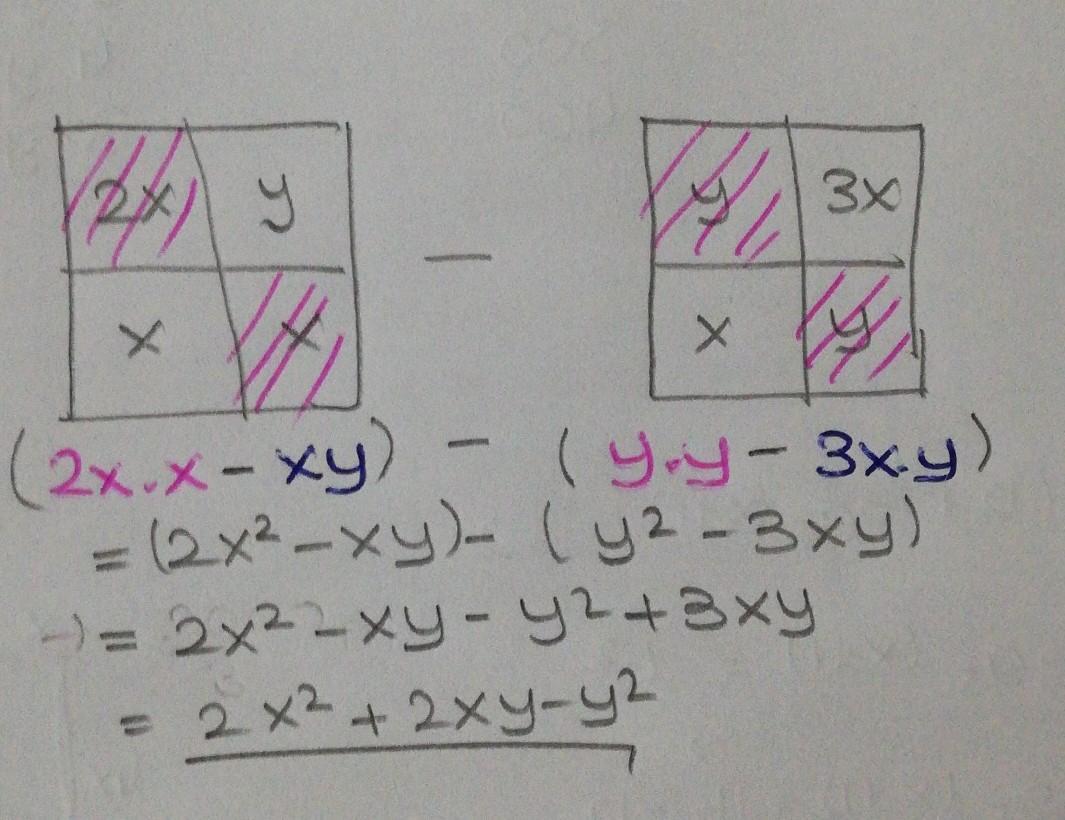 2x y — y 3x
x x x y
(2x.x - xy) - (y.y - 3x.y)
= (2x² - xy) - (y² - 3xy)
-) = 2x² - xy - y² + 3xy
= 2x² + 2xy - y²